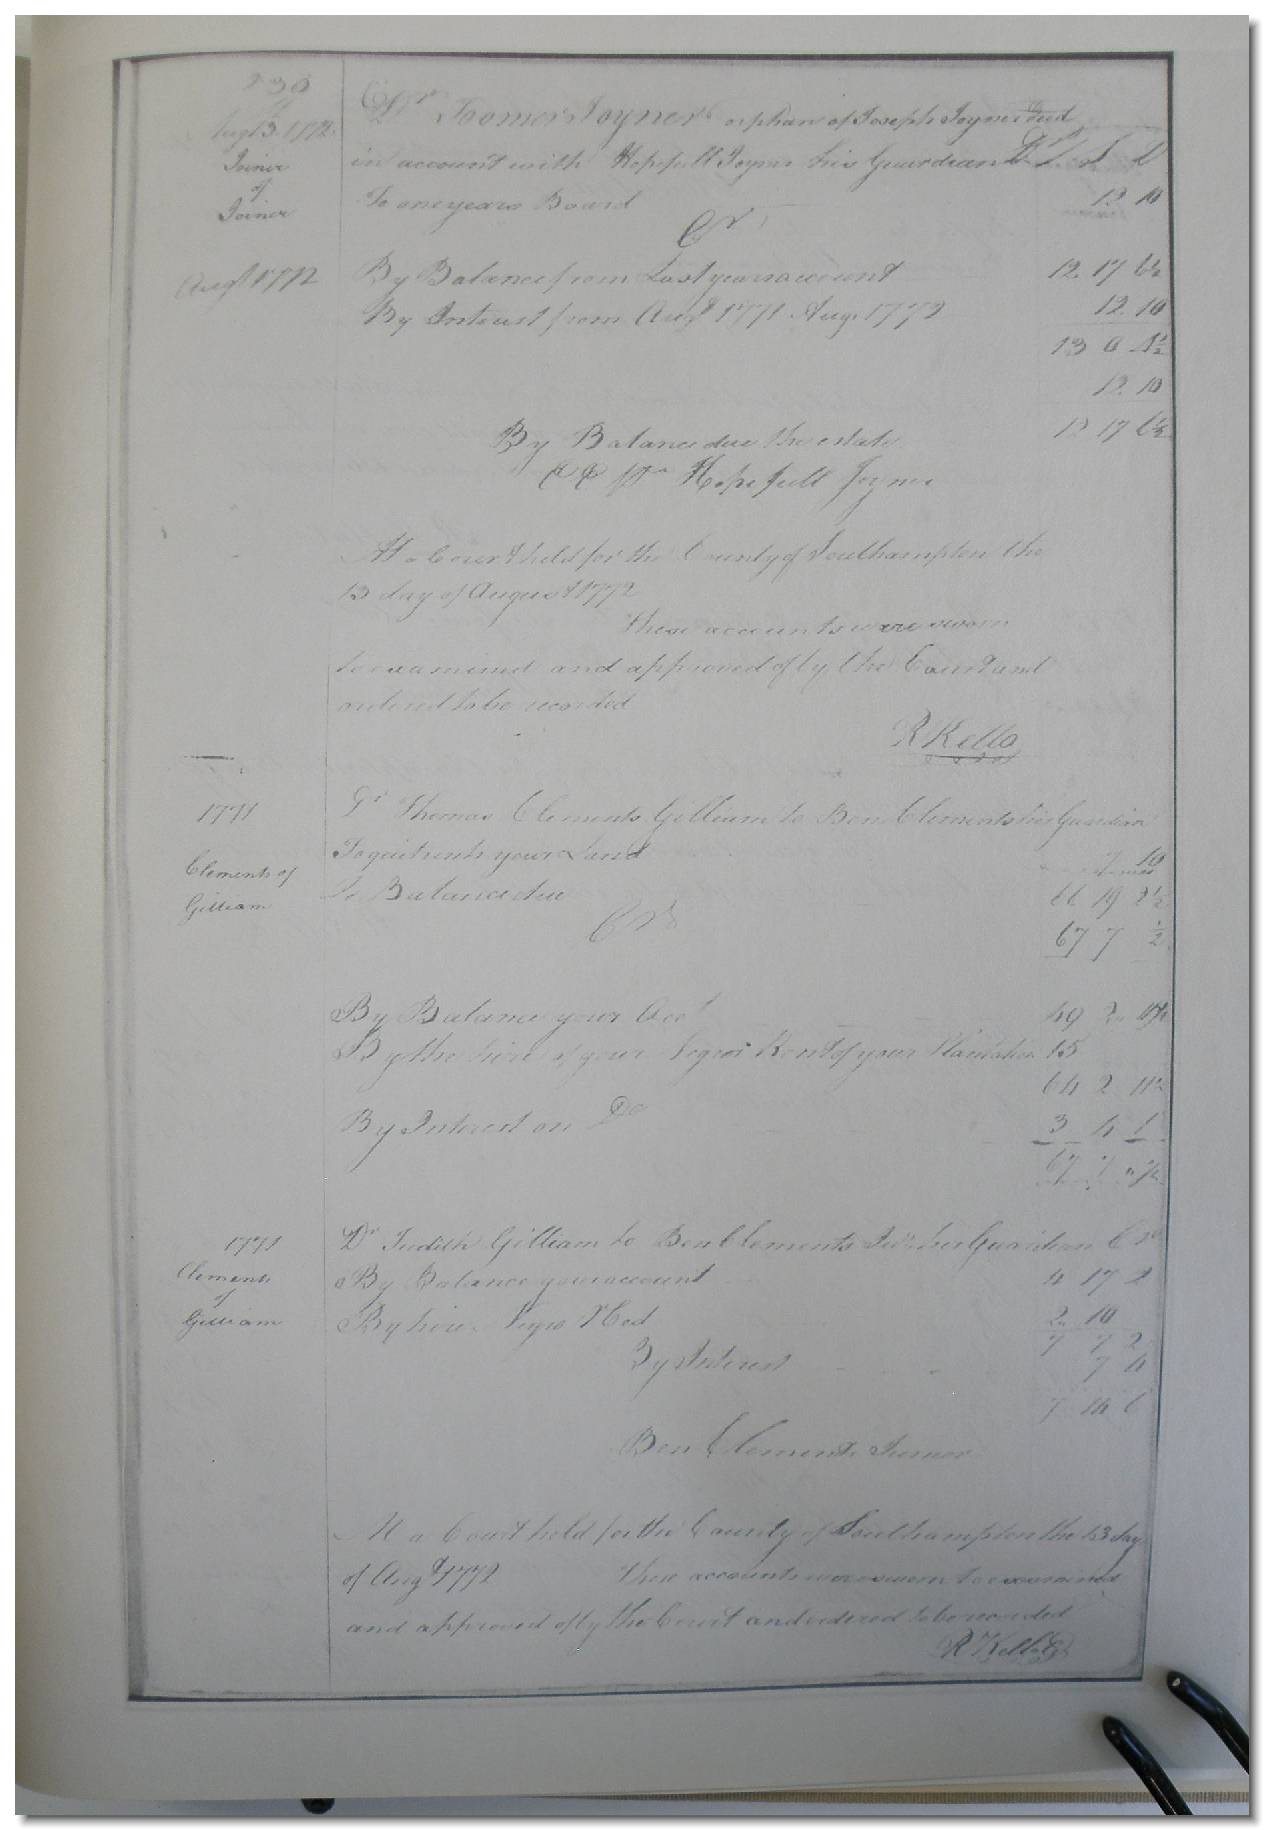 Augt 13. 1772
Joiner
of
Joiner
Dr Toomer Joyner orphan of Joseph Joyner Decd
in account with Hopefull Joyner his Guardian Dr L S D
To one years Board 12 10
Cr
Augt 1772
By Balance from Last years account 12. 17 6½
By Interest from Augt 1771 Aug. 1772 12. 10
13
12. 10
By Balance due the estate 12 17 6½
Hopefull Joyner
At a Court held for the County of Southampton the
13 day of August 1772
These accounts were sworn
to examined and approved of by the Court and
ordered to be recorded
R Kello
1771
Clements of
Gilliam
Dr Thomas Clements Gilliam to Ben Clements his Guardian
To quitrents your Land 7 10
To Balance due 66 19 2½
Cr 67 7 ½
By Balance your Acct 49 2
By the hire of your Negroes Rent of your Plantation 15
64 2 11½
By Interest on Do 3 4 1
67 7 ½
1771
Clements
of
Gilliam
Dr Judith Gilliam to Ben Clements Junr her Guardian Cr
By Balance your account 4 17 2
By hire Negro 2. 10
7 7 2
By Interest 7 4
7 14 6
Ben Clements Junior
At a Court held for the County of Southampton the 13 day
of Augt 1772 These accounts were sworn to examined
and approved of by the Court and ordered to be recorded
R Kello